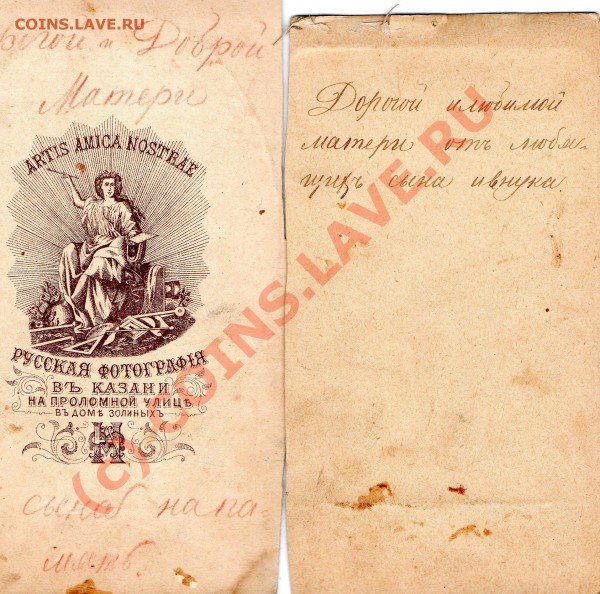 COINS.LAVE.RU
и Доброй
Матери
ARTIS AMICA NOSTRAE
РУССКАЯ ФОТОГРАФІЯ
ВЪ КАЗАНИ
НА ПРОЛОМНОЙ УЛИЦѢ
ВЪ ДОМѢ ЗОЛИНЫХЪ
на па-
мять.
Дорогой илюбимой
матери отъ любя-
щихъ сына ивнука.
(c) COINS.LAVE.RU
COINS.LAVE.RU